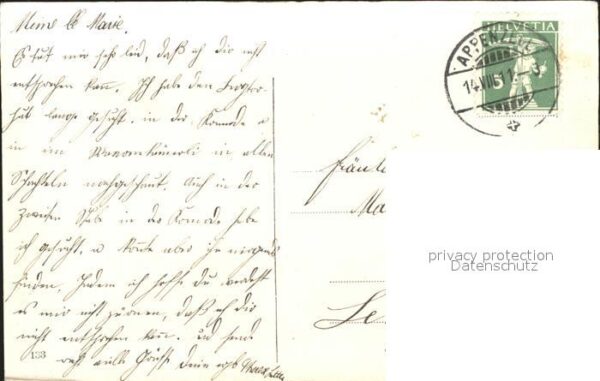 Meine lb Marie.
Es tut mir sehr leid, daß ich dir nicht
entsprochen kann. Ich habe den
lange gesucht. in der Komode u
in im in allen
Schachteln nachgeschaut. Auch in der
zweiten Stube in der Komode habe
ich gesucht. u konte aber ihn nirgends
finden, Indem ich hoffe du werdest
es mir nicht zürnen, daß ich dir
nicht entsprochen kann. und sende
recht viele Grüsse deine
133
HELVETIA
APPENZELL
14.VIII.11
5
Fräulei
Ma
privacy protection
Datenschutz